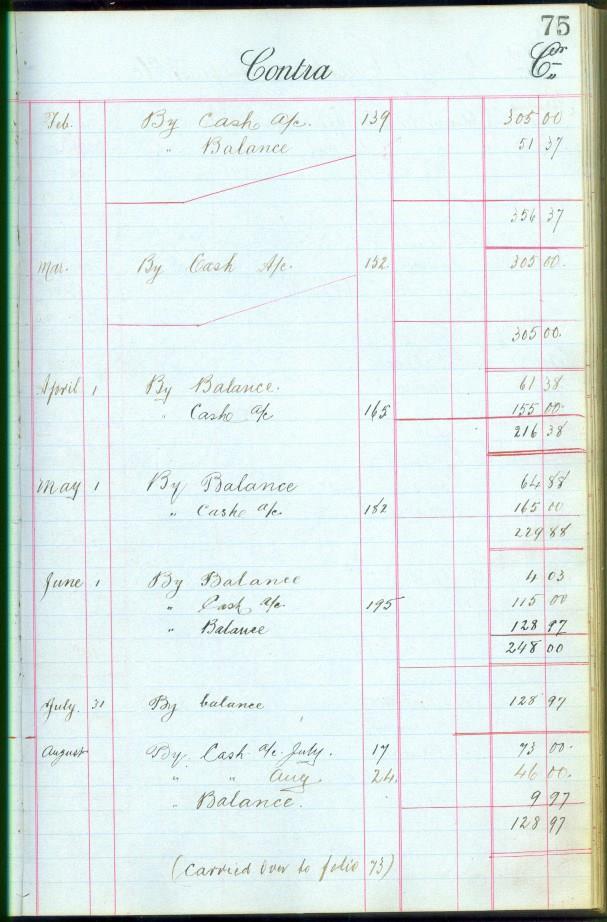 75
Contra Cr
Feb. By Cash a/c. 139 305 00
" Balance 51 37
356 37
Mar. By Cash A/c. 152 305 00.
305 00.
April 1 By Balance. 61 38
" Cash a/c 165 155 00
216 38
May 1 By Balance 64 88
" Cash a/c. 182 165 00
229 88
June 1 By Balance 4 03
" Cash a/c. 195 115 00
" Balance 128 97
248 00
July. 31 By balance 128 97
August By Cash a/c. July. 17 73 00.
" " Aug. 24. 46 00.
" Balance. 9 97
128 97
(Carried over to folio 73)